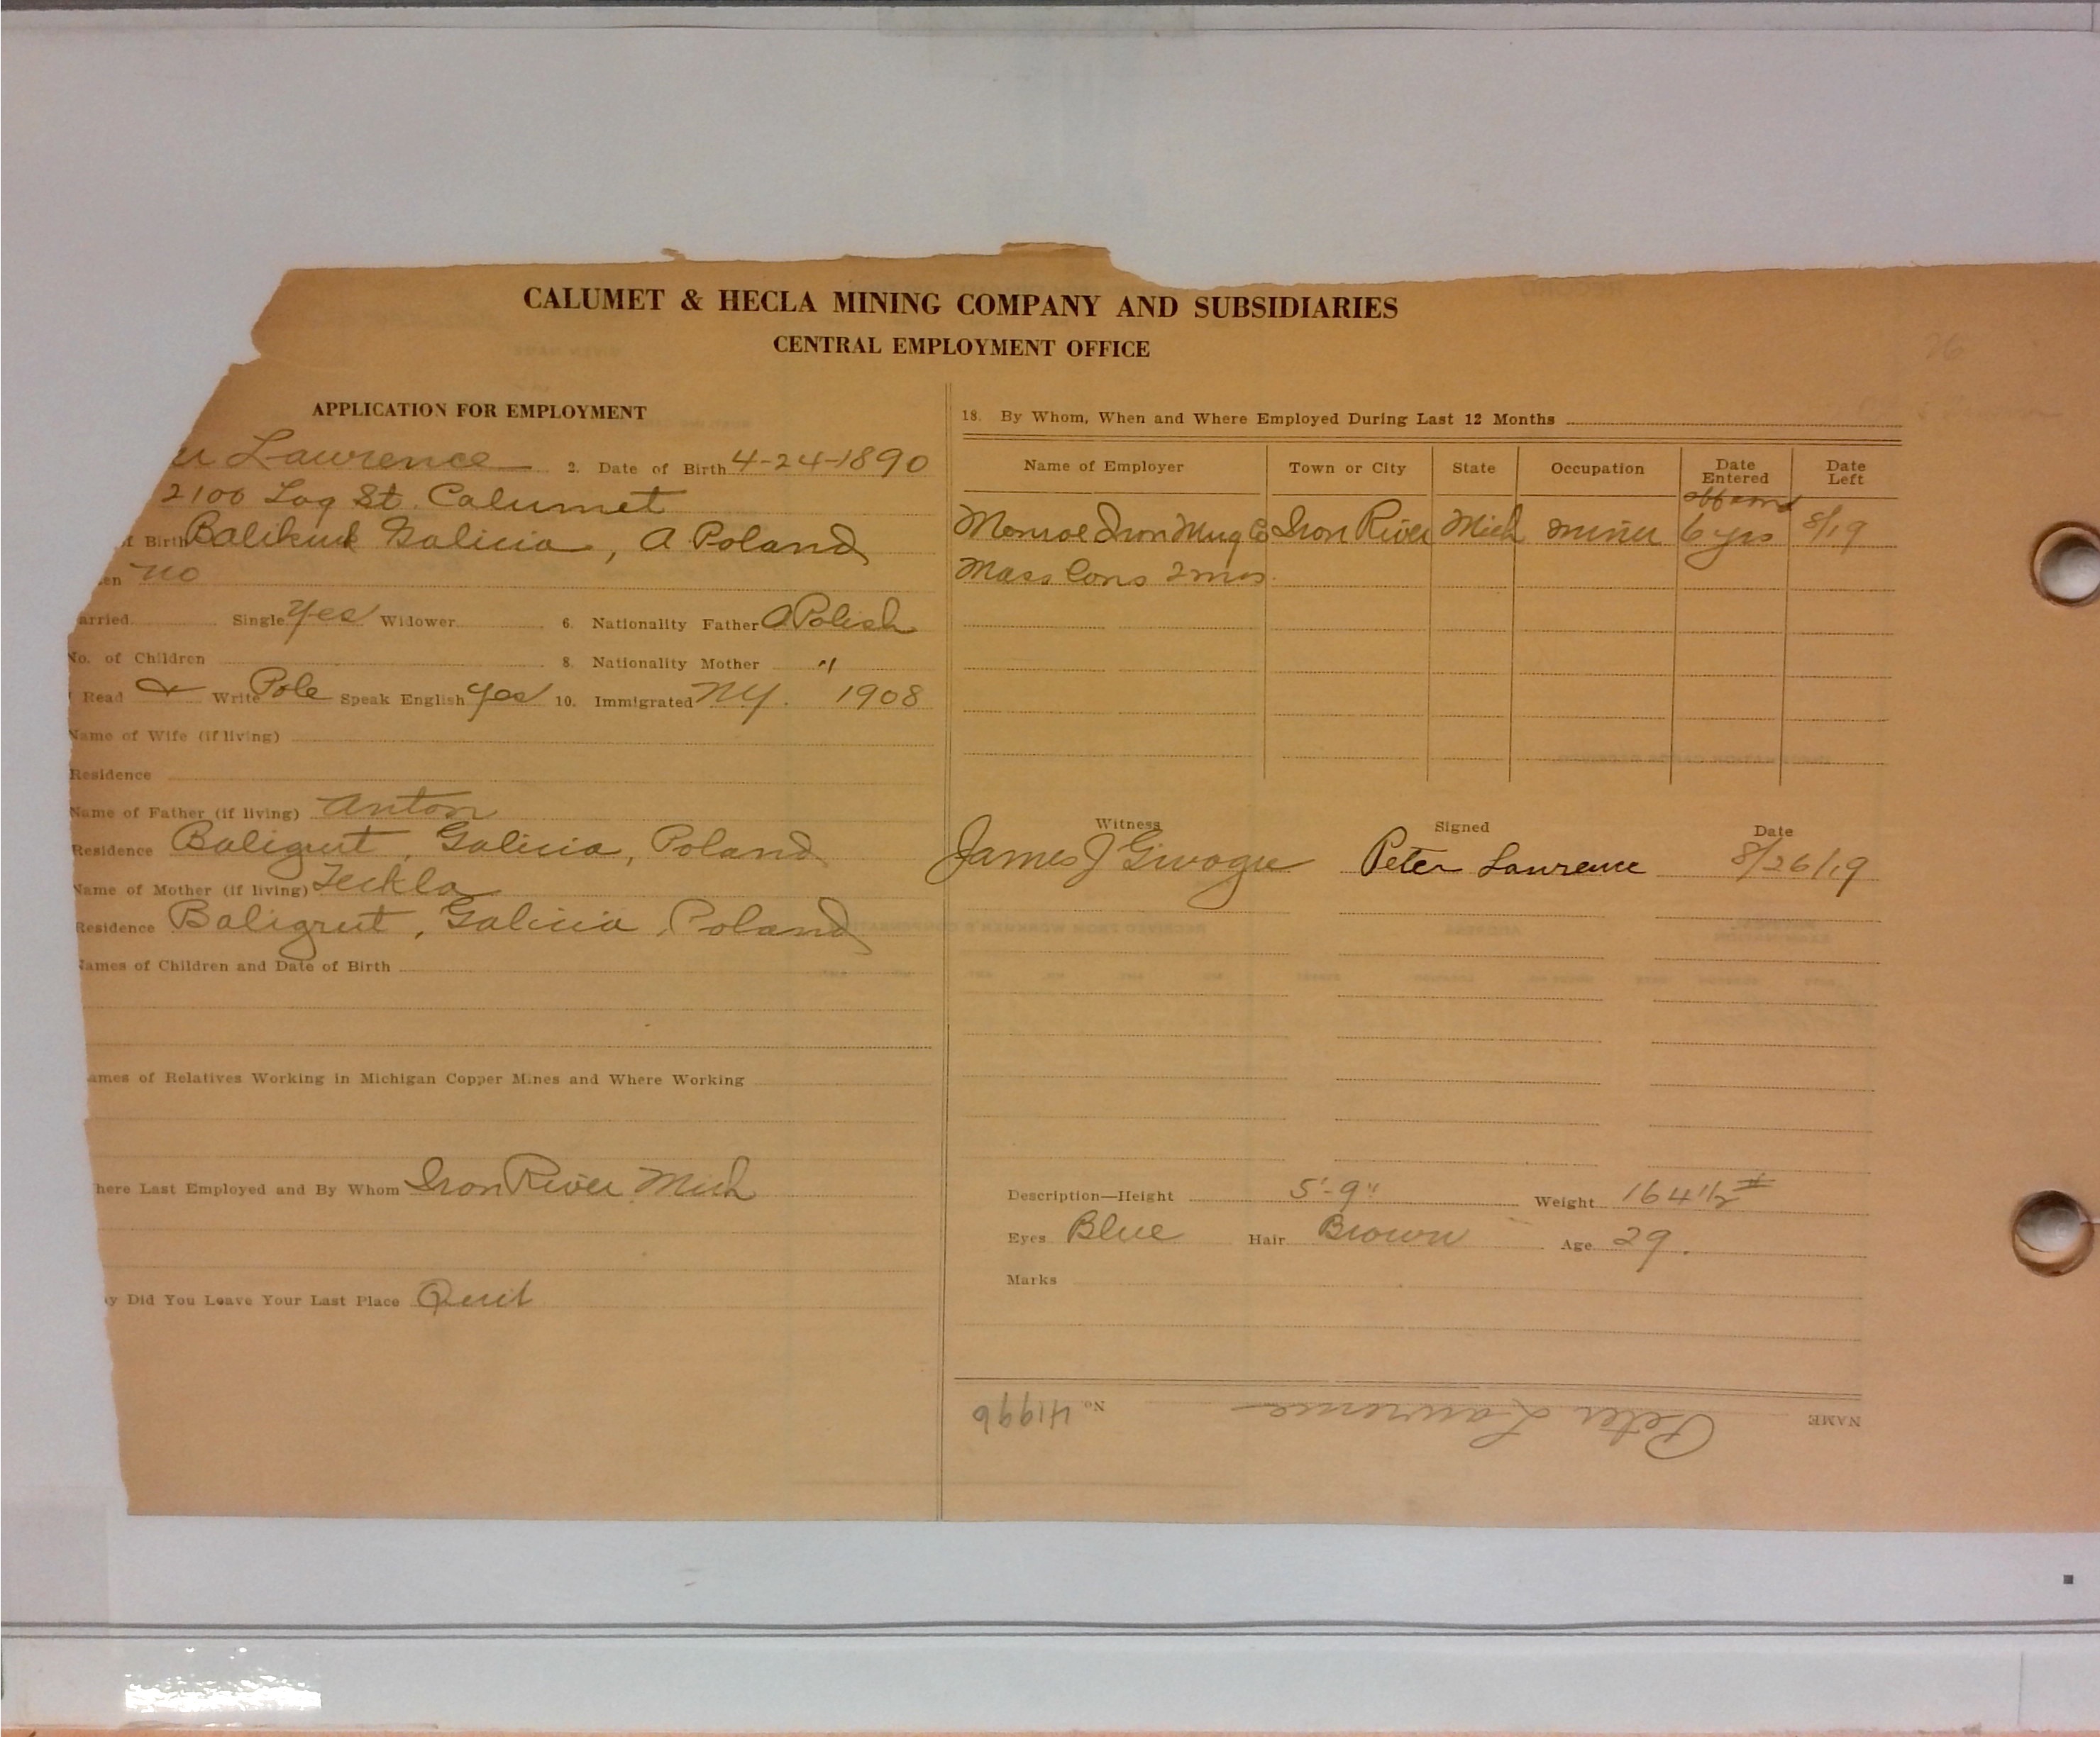 CALUMET & HECLA MINING COMPANY AND SUBSIDIARIES
CENTRAL EMPLOYMENT OFFICE
APPLICATION FOR EMPLOYMENT
er Lawrence 2. Date of Birth 4-24-1890
2100 Log St. Calumet
Birth Galicia, A Poland
en no
arried Single yes Widower 6. Nationality Father A Polish
No. of Children 8. Nationality Mother "
Read & Write Pole Speak English yes 10. Immigrated NY. 1908
Name of Wife (if living)
Residence
Name of Father (if living) Anton
Residence Baligrut, Galicia, Poland
Name of Mother (if living) Teckla
Residence Baligrut, Galicia, Poland
Names of Children and Date of Birth
ames of Relatives Working in Michigan Copper Mines and Where Working
here Last Employed and By Whom Iron River Mich
y Did You Leave Your Last Place Quit
18. By Whom, When and Where Employed During Last 12 Months
Name of Employer Town or City State Occupation Date Entered Date Left
off and
Monroe Iron Mng Co Iron River Mich miner 6 yrs 8/19
Mass Cons 2 mos.
Witness Signed Date
James J Peter Lawrence 8/26/19
Description—Height 5'-9" Weight 164 1/2 #
Eyes Blue Hair Brown Age 29.
Marks
NAME Peter Lawrence No. 41996